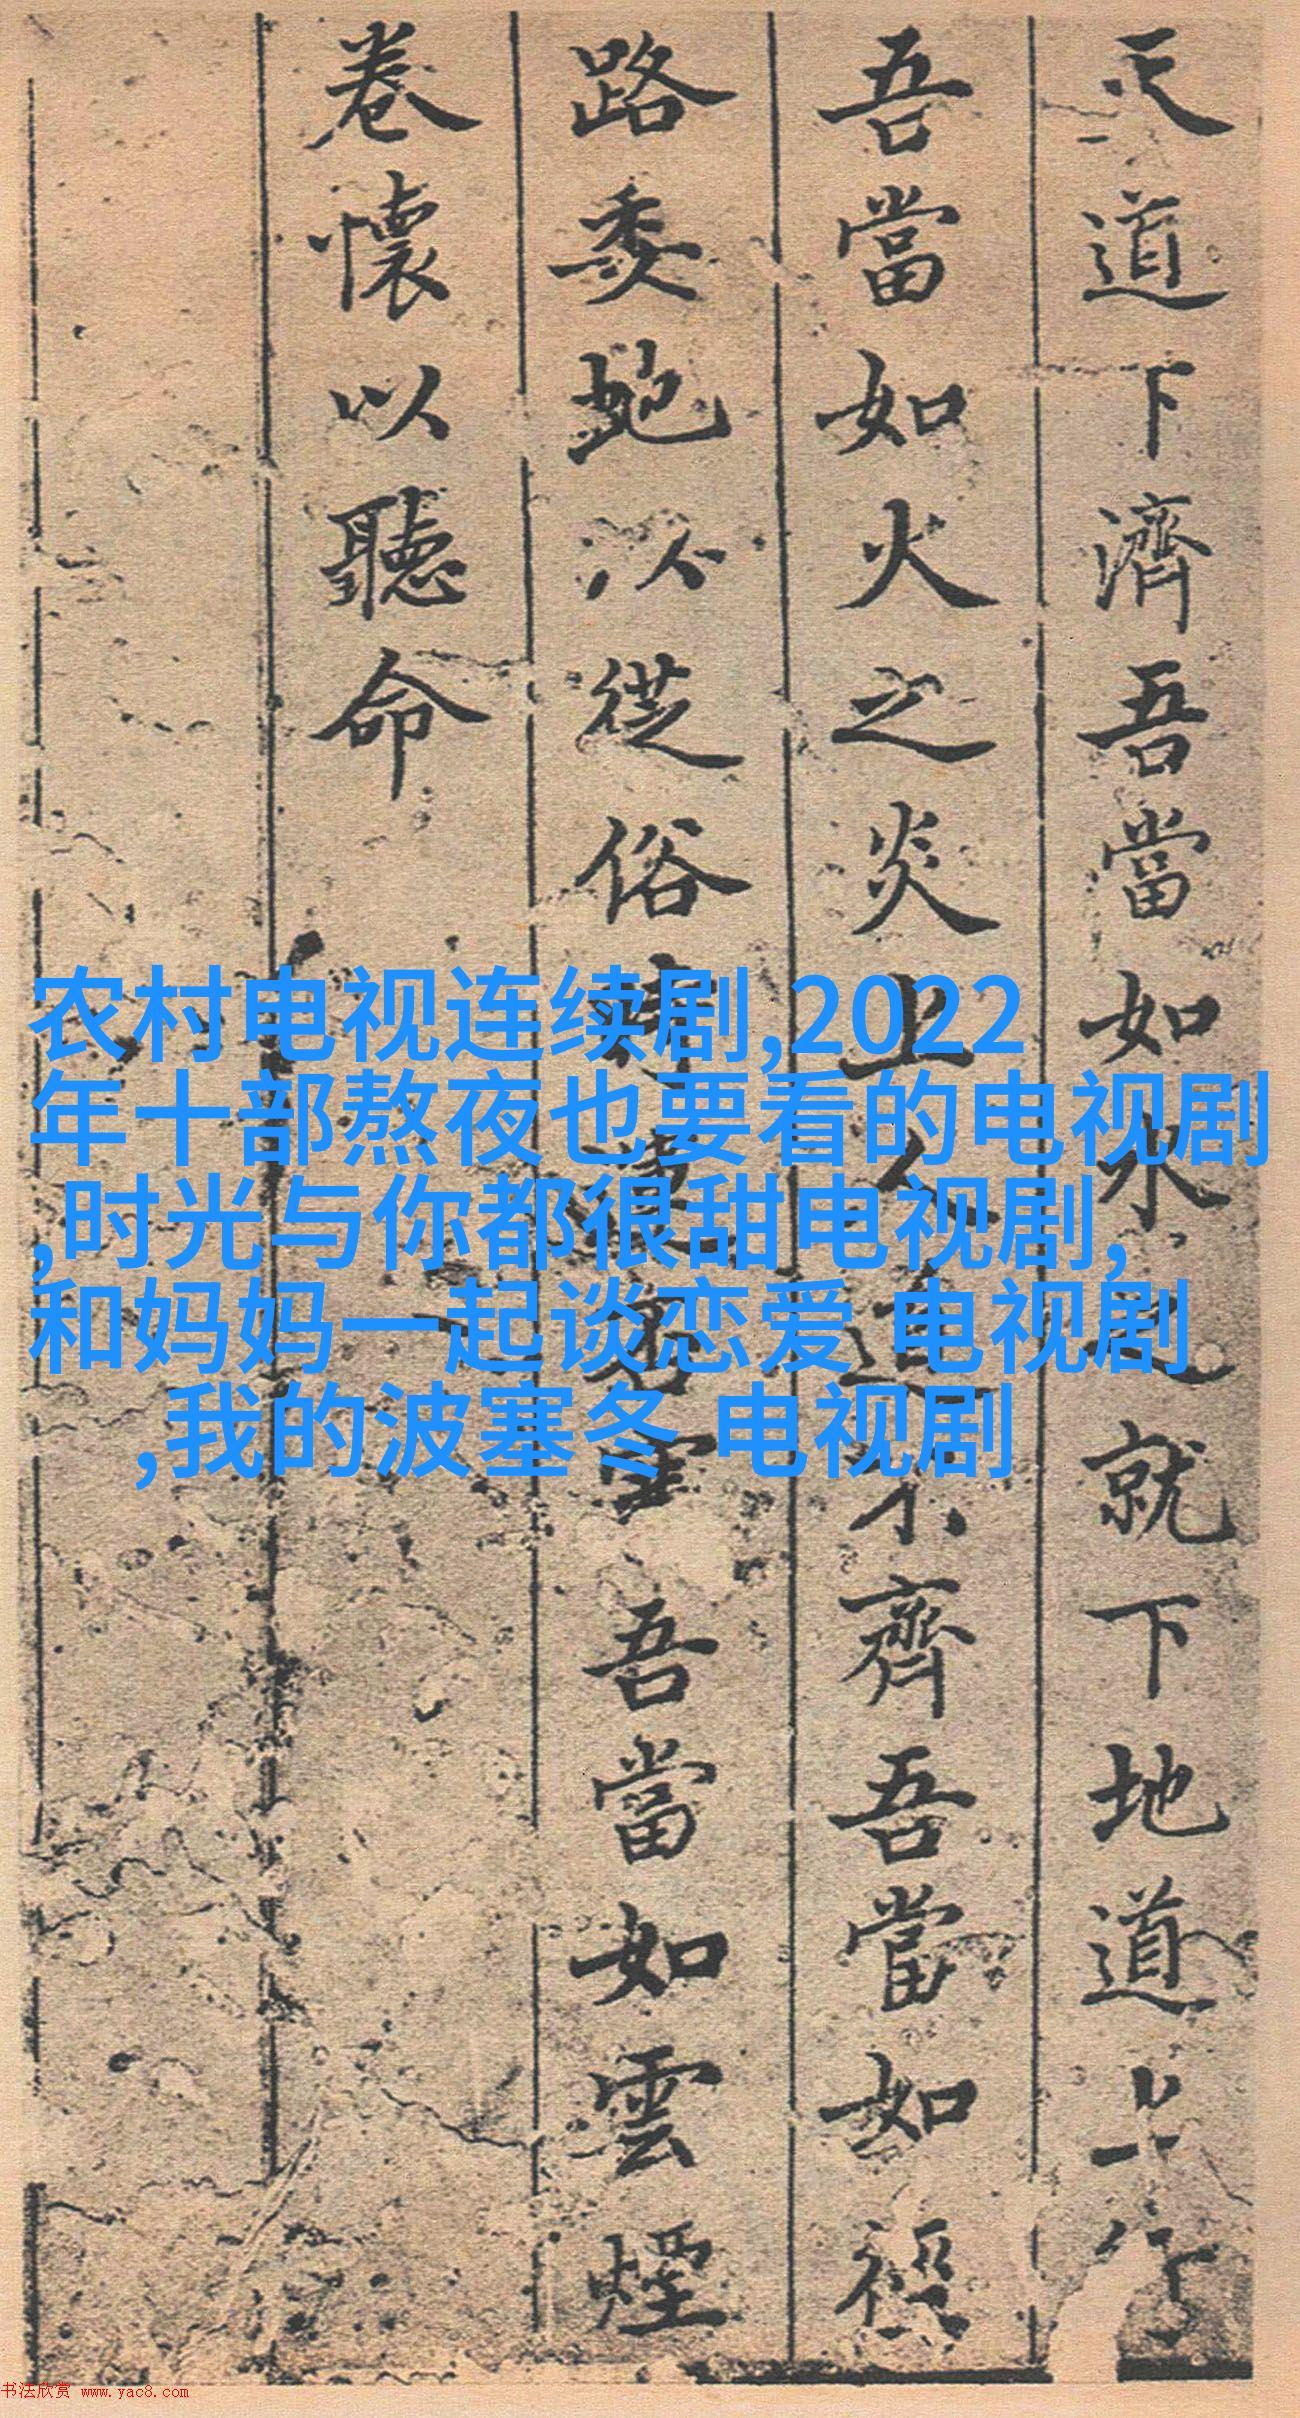 天道下濟吾當如水之就下地道上行
吾當如火之炎上人道不齊吾當如徑
路委蛇以從俗時變吾當如雲煙
卷懷以聽命
农村电视连续剧,2022
年十部熬夜也要看的电视剧
,时光与你都很甜电视剧,
和妈妈一起谈恋爱 电视剧
,我的波塞冬 电视剧
书法欣赏 www.yac8.com